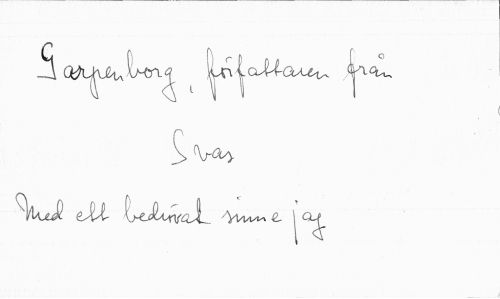 Garpenborg, författaren från
Svar
Med ett bedrövat sinne jag